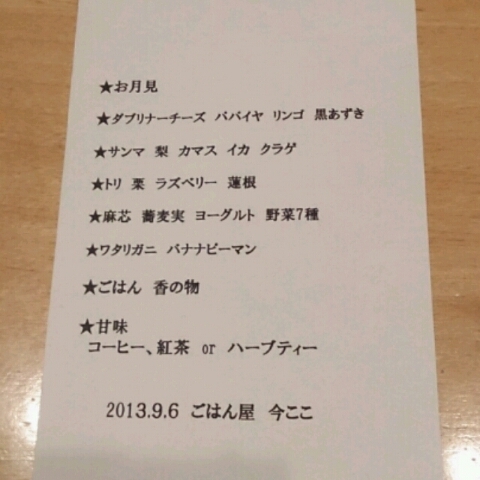 ★お月見
★ダブリナーチーズ パパイヤ リンゴ 黒あずき
★サンマ 梨 カマス イカ クラゲ
★トリ 栗 ラズベリー 蓮根
★麻芯 蕎麦実 ヨーグルト 野菜7種
★ワタリガニ バナナピーマン
★ごはん 香の物
★甘味
コーヒー、紅茶 or ハーブティー
2013.9.6 ごはん屋 今ここ